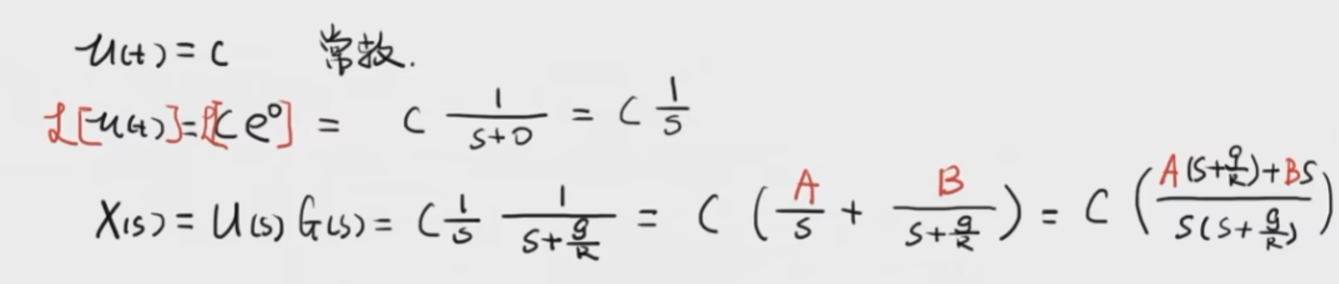 u(t) = C 常数.
ℒ[u(t)] = ℒ[C e⁰] = C 1/(s+0) = C 1/s
X(s) = U(s) G(s) = C 1/s 1/(s+g/R) = C (A/s + B/(s+g/R)) = C ((A(s+g/R)+Bs)/(s(s+g/R)))